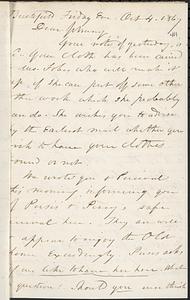 Brookfield Friday Eve. Oct 4. 1867
Dear Johnny
Your note of yesterday, is
Your Cloth has been carried
Mrs. John, who will make it
up, if she can put off some other
work which she probably
can do. She wishes you to advise
by the Earliest mail whether you
wish to have your clothes
bound or not.
We wrote you &
this morning informing you
of & Percy's safe
arrival here. They
appear to enjoy the Old
home Exceedingly.
if we like to have her here
question! Should you